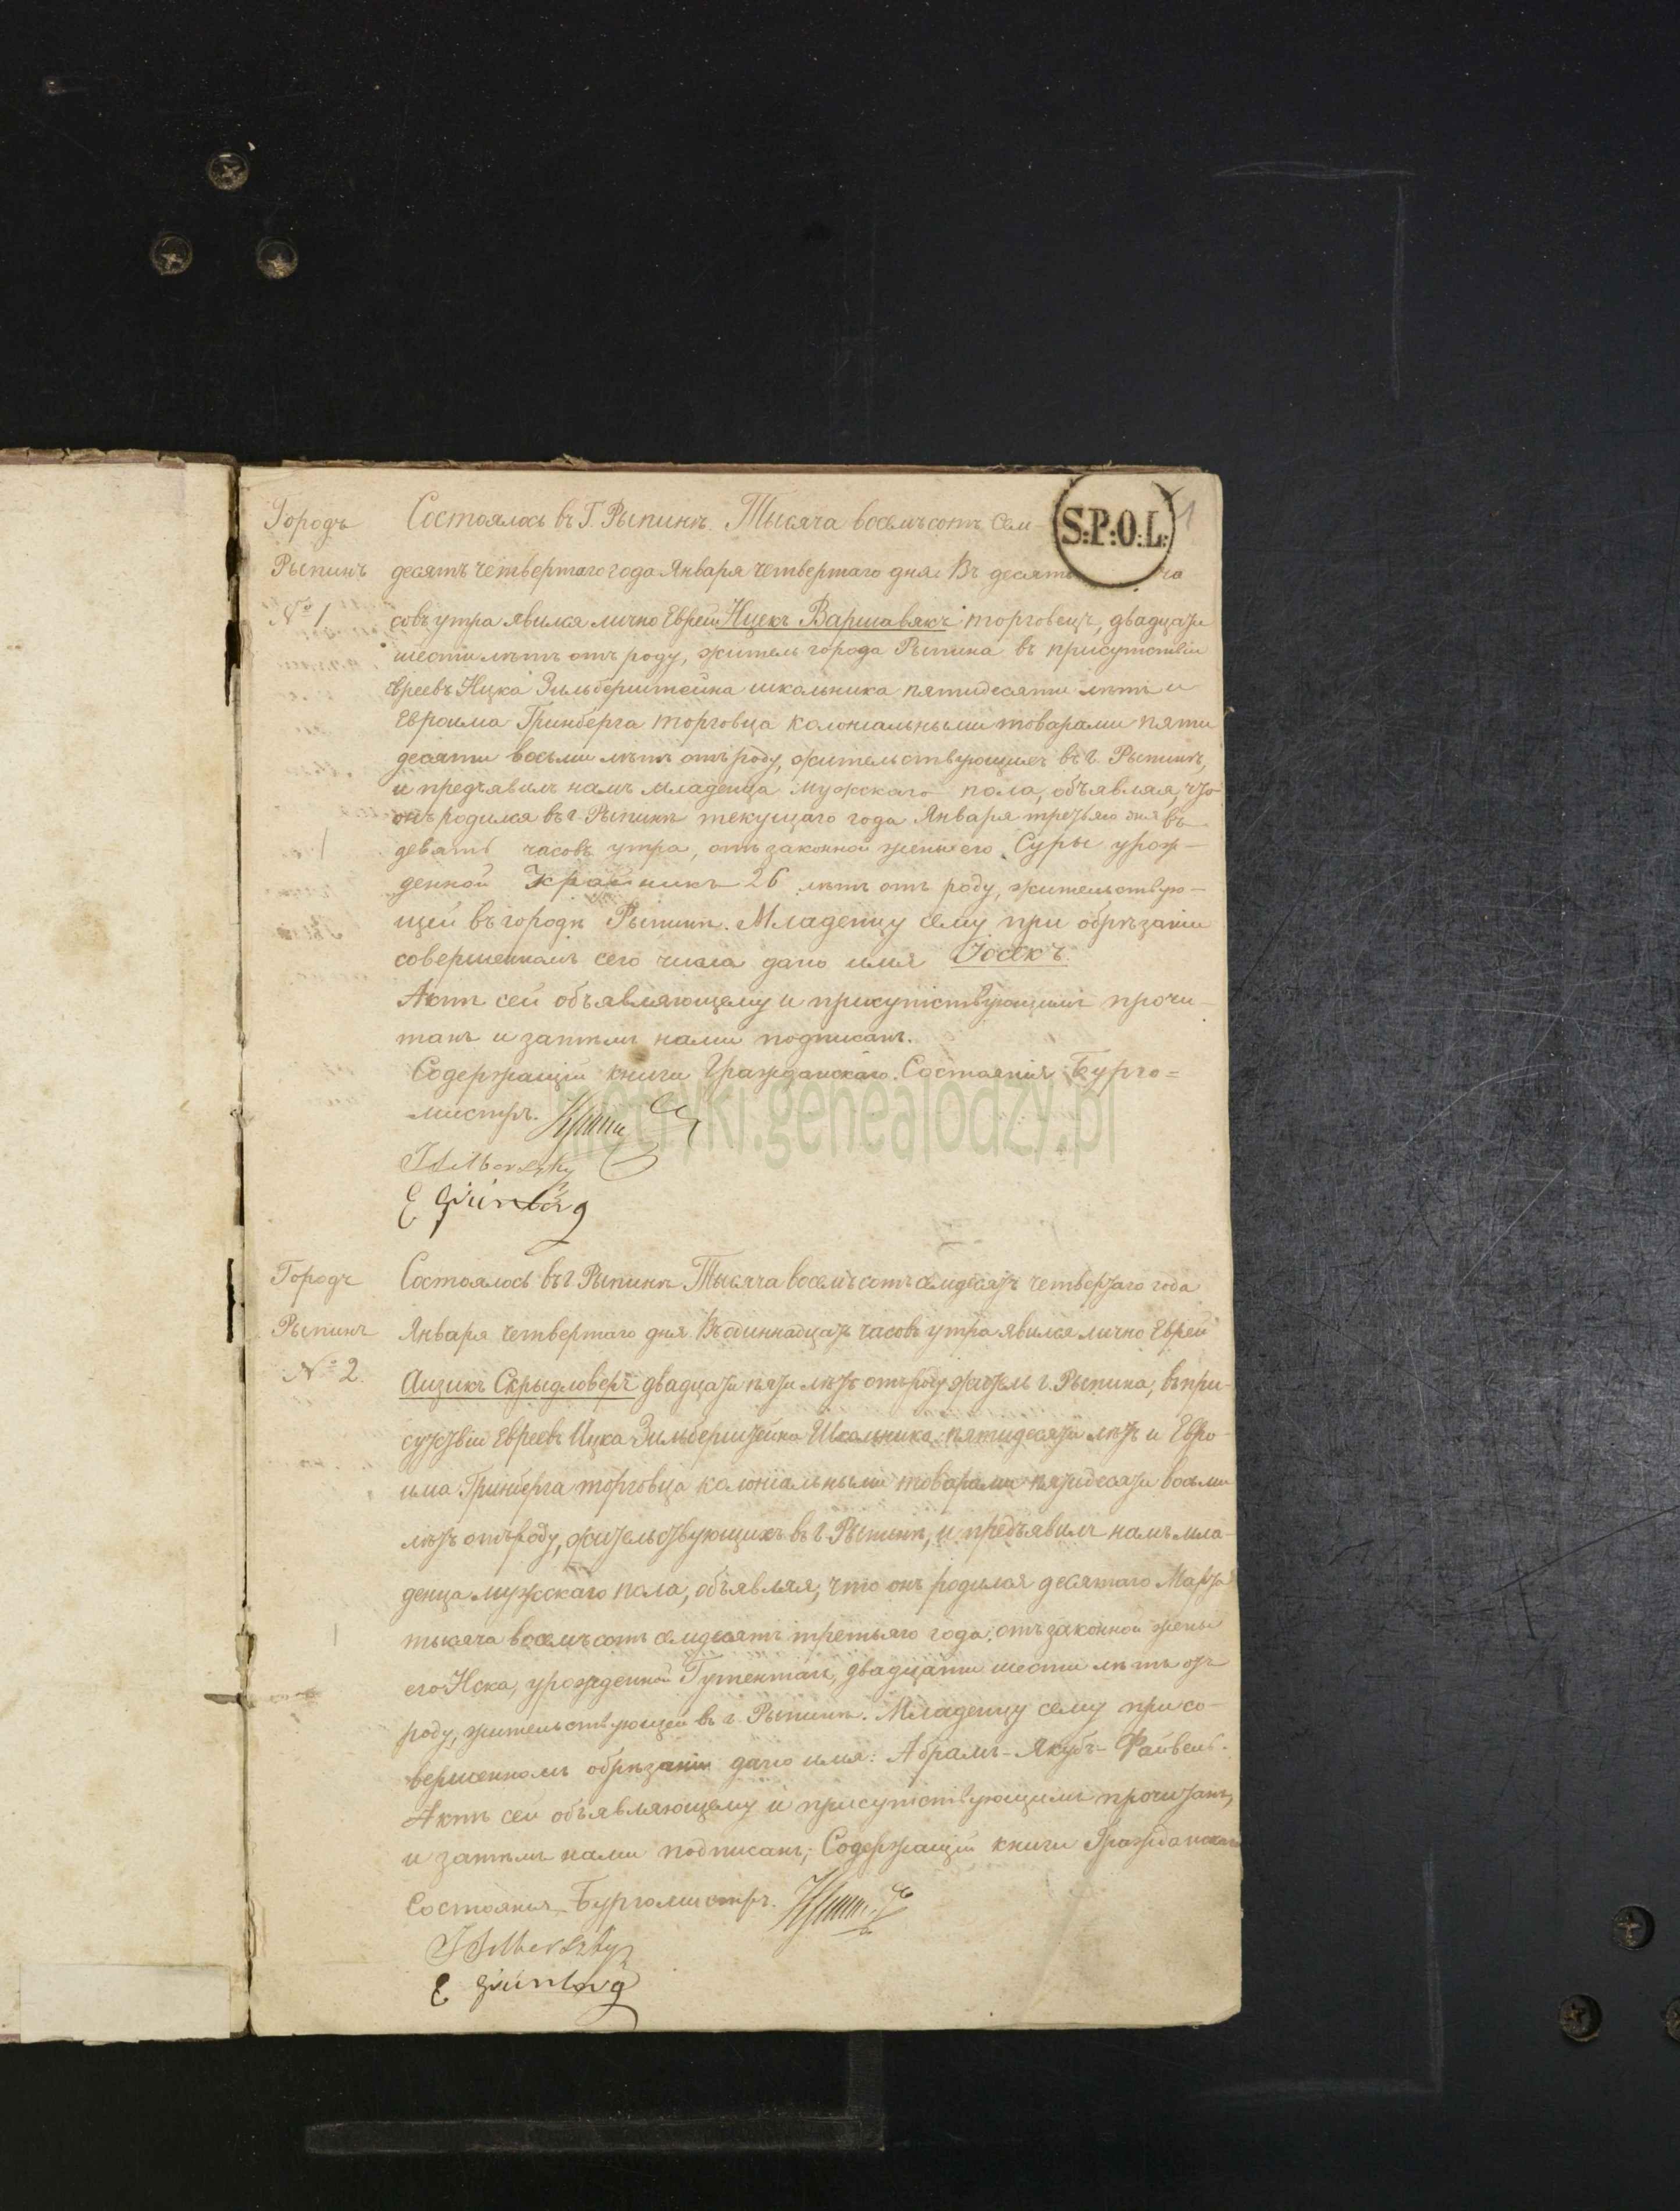 1
S.P.O.L.
Городъ
Рыпинъ
№ 1
Состоялось въ Г. Рыпинѣ. Тысяча восемьсотъ сем-
десятъ четвертаго года Января четвертаго дня. Въ десять ча
совъ утра явился лично Еврей Ицекъ Варшавякъ торговецъ, двадцати
шести лѣтъ отъ роду, житель города Рыпина въ присутствіи
евреевъ Ицка Зильберштейна школьника пятидесяти лѣтъ и
Евроима Гринберга торговца колоніальными товарами пяти
десяти восьми лѣтъ отъ роду, жительствующихъ въ г. Рыпинѣ,
и предъявилъ намъ младенца мужскаго пола, объявляя, что
онъ родился въ г. Рыпинѣ текущаго года Января третьяго дня въ
девять часовъ утра, отъ законной жены его Суры урож-
денной 26 лѣтъ отъ роду, жительствую-
щей въ городѣ Рыпинѣ. Младенцу сему при обрѣзаніи
совершенномъ сего числа дано имя Іосекъ.
Актъ сей объявляющему и присутствующимъ прочи-
танъ и затѣмъ нами подписанъ.
Содержащій книги Гражданскаго Состоянія Бурго=
мистръ.
E Grünberg
metryki.genealodzy.pl
Городъ
Рыпинъ
№ 2.
Состоялось въ г. Рыпинѣ Тысяча восемьсотъ семдесятъ четвертаго года
Января четвертаго дня. Въ одиннадцать часовъ утра явился лично Еврей
Аизикъ Скрыдловеръ двадцати пяти лѣтъ отъ роду житель г. Рыпина, въ при-
сутствіи Евреевъ Ицка Зильберштейна Школьника пятидесяти лѣтъ и Евро-
има Гринберга торговца колоніальными товарами пятидесяти восьми
лѣтъ отъ роду, жительствующихъ въ г. Рыпинѣ, и предъявилъ намъ мла-
денца мужскаго пола, объявляя, что онъ родился десятаго Марта
тысяча восемьсотъ семдесятъ третьяго года, отъ законной жены
его урожденной двадцати шести лѣтъ отъ
роду, жительствующей въ г. Рыпинѣ. Младенцу сему при со-
вершенномъ обрѣзаніи дано имя: Абрамъ-Якубъ-Файвель.
Актъ сей объявляющему и присутствующимъ прочитанъ,
и затѣмъ нами подписанъ, Содержащій книги Гражданскаго
Состоянія Бургомистръ.
E Grünberg